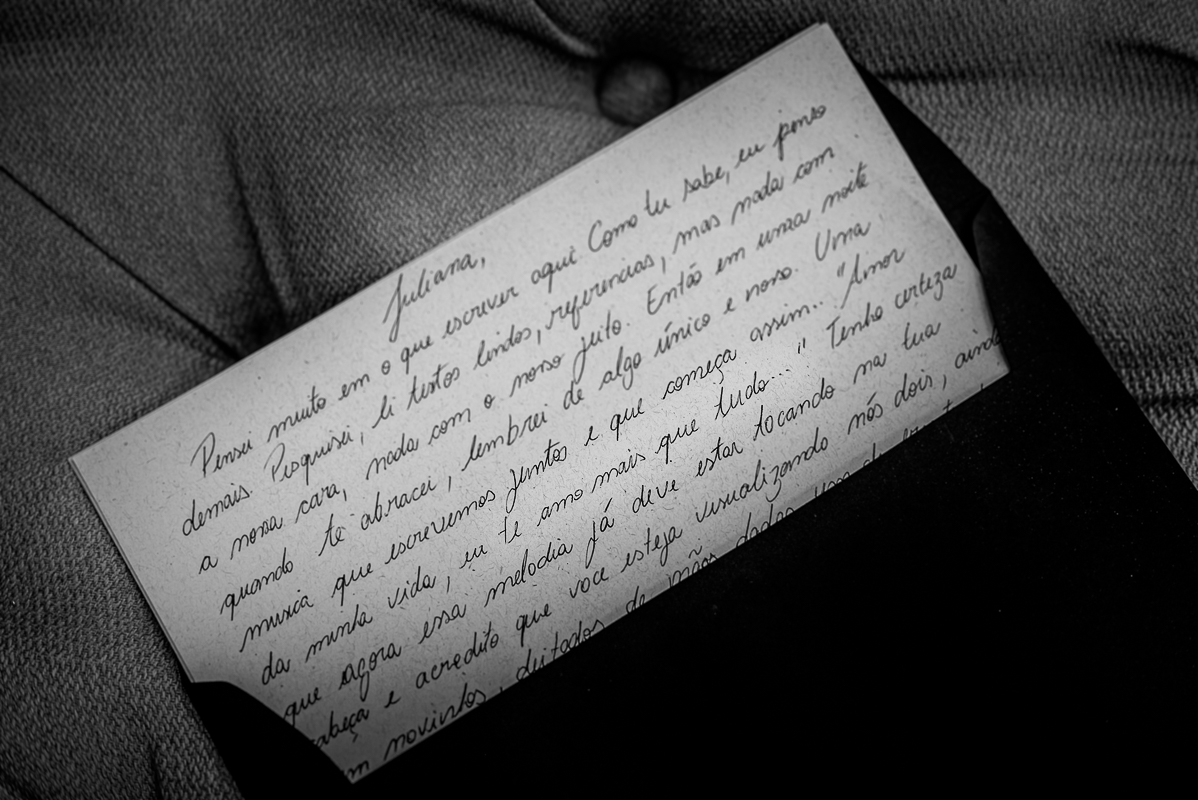 Juliana,
Pensei muito em o que escrever aqui. Como tu sabe, eu penso
demais. Pesquisei, li textos lindos, referencias, mas nada com
a nossa cara, nada com o nosso jeito. Então em uma noite
quando te abracei, lembrei de algo único e nosso. Uma
musica que escrevemos juntos e que começa assim.. "Amor
da minha vida, eu te amo mais que tudo..." Tenho certeza
que agora essa melodia já deve estar tocando na tua
cabeça e acredito que voce esteja visualizando nós dois, ainda
em novinhos, deitados de mãos dadas